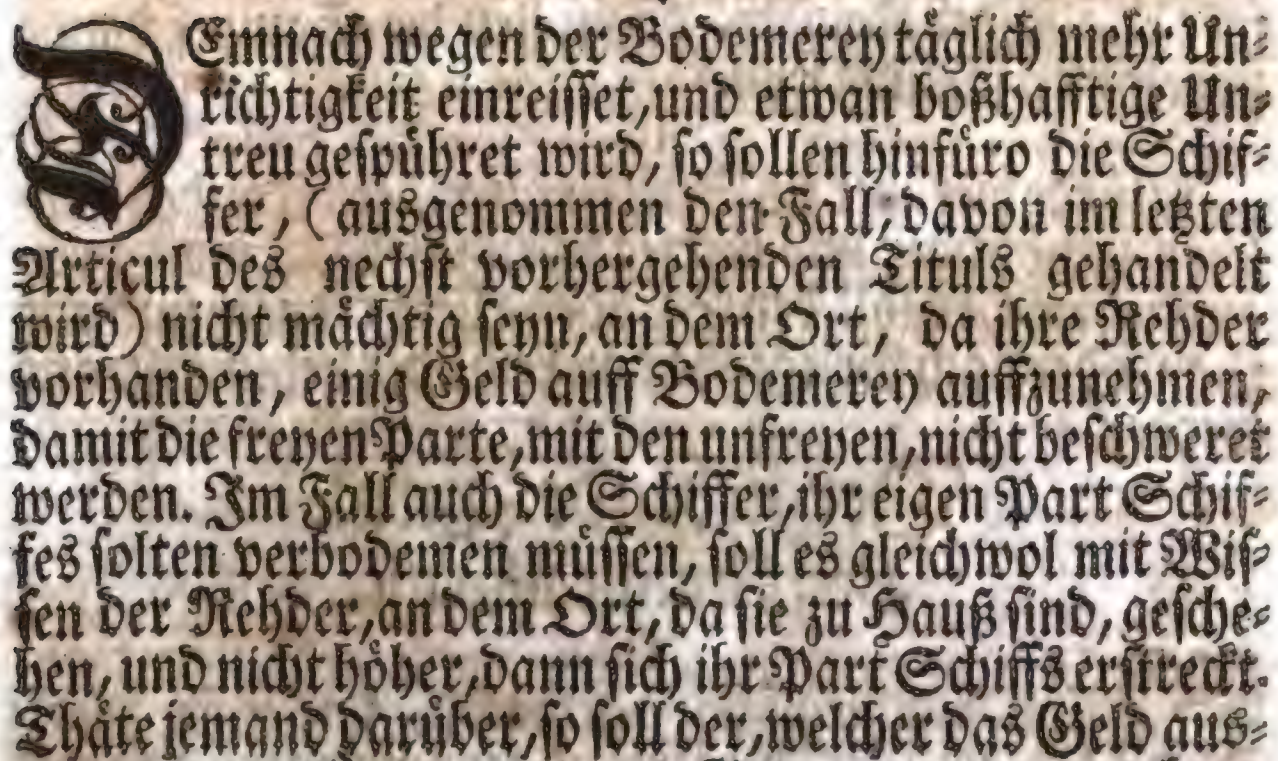 DEmnach wegen der Bodemerey täglich mehr Un⸗
richtigkeit einreisset, und etwan boßhafftige Un⸗
treu gespühret wird, so sollen hinfüro die Schif⸗
fer, (ausgenommen den Fall, davon im letzten
Articul des nechst vorhergehenden Tituls gehandelt
wird) nicht mächtig seyn, an dem Ort, da ihre Rehder
vorhanden, einig Geld auff Bodemerey auffzunehmen,
damit die freyen Parte, mit den unfreyen, nicht beschweret
werden. Im Fall auch die Schiffer, ihr eigen Part Schif⸗
fes solten verbodemen müssen, soll es gleichwol mit Wis⸗
sen der Rehder, an dem Ort, da sie zu Hauß sind, gesche⸗
hen, und nicht höher, dann sich ihr Part Schiffs erstreckt.
Thäte jemand darüber, so soll der, welcher das Geld aus⸗